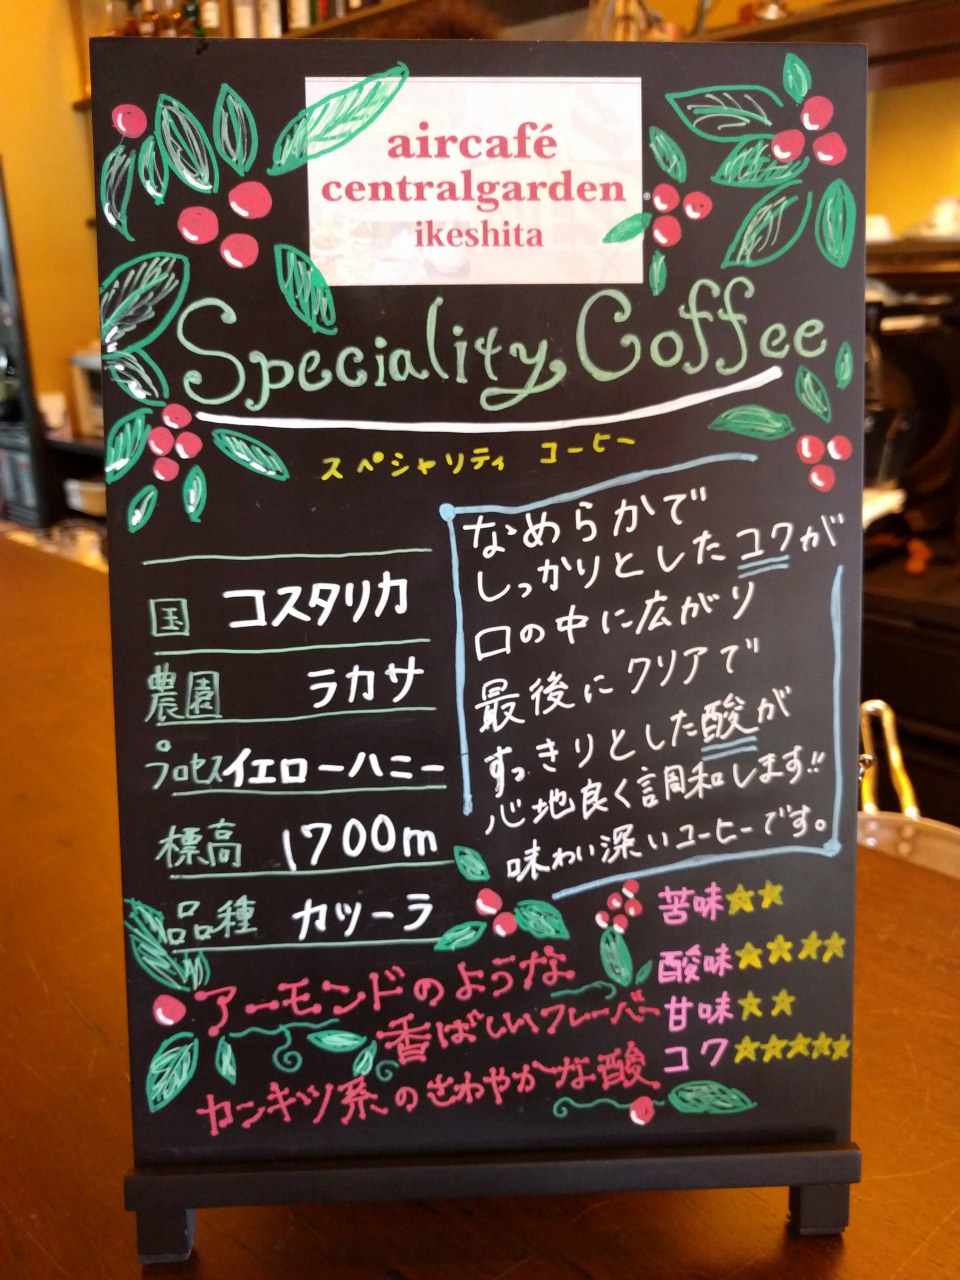 aircafé
centralgarden
ikeshita
Speciality Coffee
スペシャリティ コーヒー
国 コスタリカ
農園 ラカサ
プロセス イエローハニー
標高 1700m
品種 カツーラ
なめらかで
しっかりとしたコクが
口の中に広がり
最後にクリアで
すっきりとした酸が
心地良く調和します!!
味わい深いコーヒーです。
アーモンドのような
香ばしいフレーバー
カンキツ系のさわやかな酸
苦味★★
酸味★★★★
甘味★★
コク★★★★★